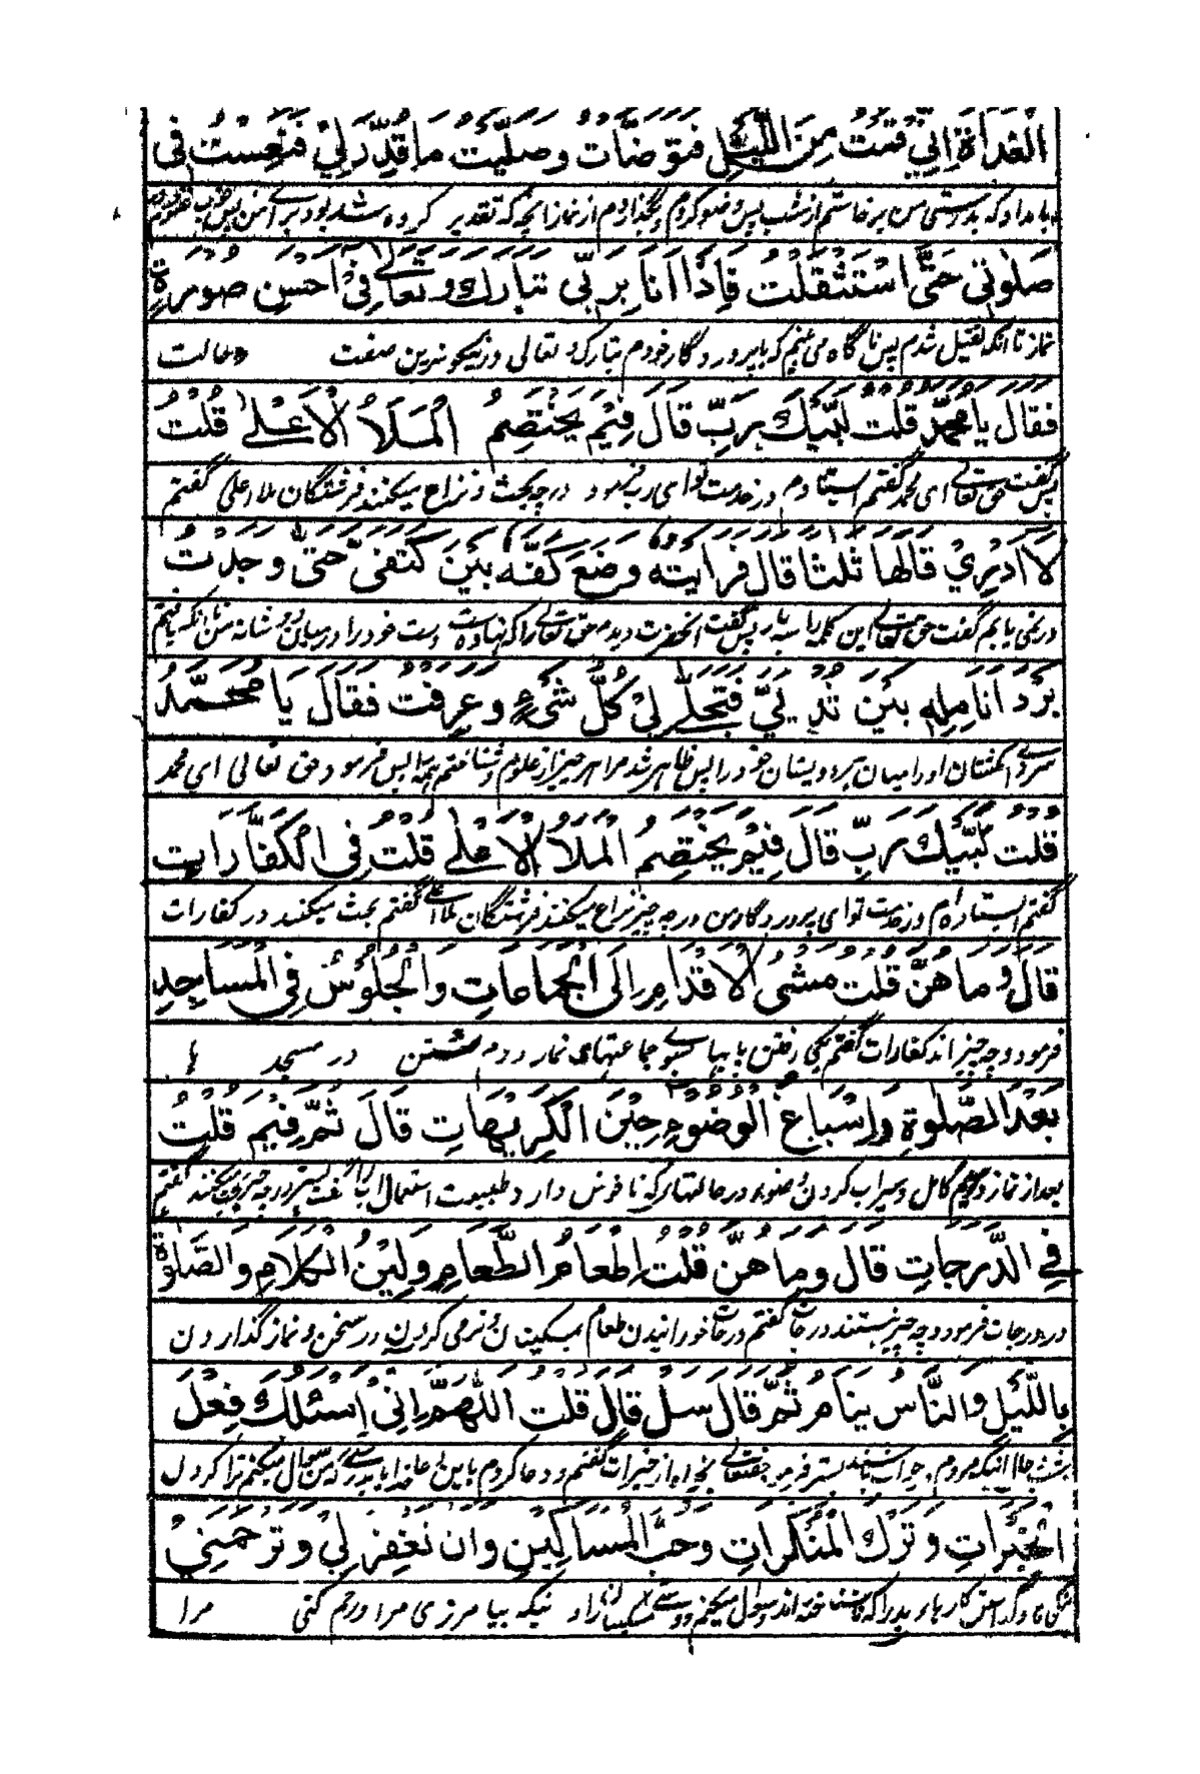 الْغَدَاةَ اِنِّي قُمْتُ مِنَ اللَّيْلِ فَتَوَضَّأْتُ وَصَلَّيْتُ مَا قُدِّرَ لِيْ فَنَعِسْتُ فِي
بامداد که بدرستی من برخاستم از شب پس وضو کردم و بگذاردم از نماز آنچه که تقدیر کرده شده بود برای من پس
صَلٰوتِي حَتَّى اسْتَثْقَلْتُ فَاِذَا اَنَا بِرَبِّي تَبَارَكَ وَ تَعَالٰے فِيْ اَحْسَنِ صُوْرَةٍ
نماز تا آنکه ثقیل شدم پس ناگاه می بینم که بپروردگار خودم تبارک و تعالی در نیکوترین صفت و حالت
فَقَالَ يَا مُحَمَّدُ قُلْتُ لَبَّيْكَ رَبِّ قَالَ فِيْمَ يَخْتَصِمُ الْمَلَاُ الْاَعْلٰى قُلْتُ
پس گفت حق تعالے ای محمد گفتم استادم در خدمت توای رب فرمود در چه بحث و نزاع میکنند فرشتگان ملا اعلی گفتم
لَا اَدْرِيْ قَالَهَا ثَلٰثًا قَالَ فَرَاَيْتُهٗ وَضَعَ كَفَّهٗ بَيْنَ كَتِفَيَّ حَتّٰى وَجَدْتُ
در نمی یابم گفت حق تعالے این کلمه را سه بار پس گفت آنحضرت دیدم حق تعالے را که نهاده است دست خود را درمیان دو شانه من تا آنکه یافتم
بَرْدَ اَنَامِلِهٖ بَيْنَ ثَدْيَيَّ فَتَجَلّٰى لِيْ كُلُّ شَيْءٍ وَ عَرَفْتُ فَقَالَ يَا مُحَمَّدُ
سردی انگشتان او را میان هر دو پستان خود را پس ظاهر شد مرا هر چیز از علوم و شناختم همه را پس فرمود حق تعالی ای محمد
قُلْتُ لَبَّيْكَ رَبِّ قَالَ فِيْمَ يَخْتَصِمُ الْمَلَاُ الْاَعْلٰى قُلْتُ فِي الْكَفَّارَاتِ
گفتم استاده ام در خدمت توای پروردگار من در چه چیز نزاع میکنند فرشتگان ملا اعلے گفتم بحث میکنند در کفارات
قَالَ وَ مَا هُنَّ قُلْتُ مَشْيُ الْاَقْدَامِ اِلَى الْجَمَاعَاتِ وَالْجُلُوْسُ فِي الْمَسَاجِدِ
فرمود و چه چیز اند کفارات گفتم یکی رفتن با پیها بسوے جماعتهای نماز دوم نشستن در مسجد ها
بَعْدَ الصَّلٰوةِ وَ اِسْبَاغُ الْوُضُوْءِ حِيْنَ الْكَرِيْهَاتِ قَالَ ثُمَّ فِيْمَ قُلْتُ
بعد از نماز و سوم کامل و سیراب کردن وضو در حالتها که ناخوش دارد طبیعت استعمال آب را گفت پستر در چه چیز بحث میکنند گفتم
فِي الدَّرَجَاتِ قَالَ وَ مَا هُنَّ قُلْتُ اِطْعَامُ الطَّعَامِ وَ لِيْنُ الْكَلَامِ وَ الصَّلٰوةُ
در درجات فرمود و چه چیز هستند درجات گفتم درجات خورانیدن طعام بمسکینان و نرمی کردن در سخن و نماز گذاردن
بِاللَّيْلِ وَالنَّاسُ نِيَامٌ ثُمَّ قَالَ سَلْ قَالَ قُلْتُ اللّٰهُمَّ اِنِّيْ اَسْئَلُكَ فِعْلَ
بشب حالانکه مردم خواب باشند پستر فرمود حق تعالے بخواه از خیرات گفتم و دعا کردم باین دعا خدایا بدرستے که من سوال میکنم ترا کردن
الْخَيْرَاتِ وَ تَرْكَ الْمُنْكَرَاتِ وَ حُبَّ الْمَسَاكِيْنِ وَ اَنْ تَغْفِرَ لِيْ وَ تَرْحَمَنِيْ
نیکی ها و گذاشتن کارهاء بد را که وسوال میکنم دوستے مسکینان را و نیکه بیامرزی مرا ورحم کنی مرا